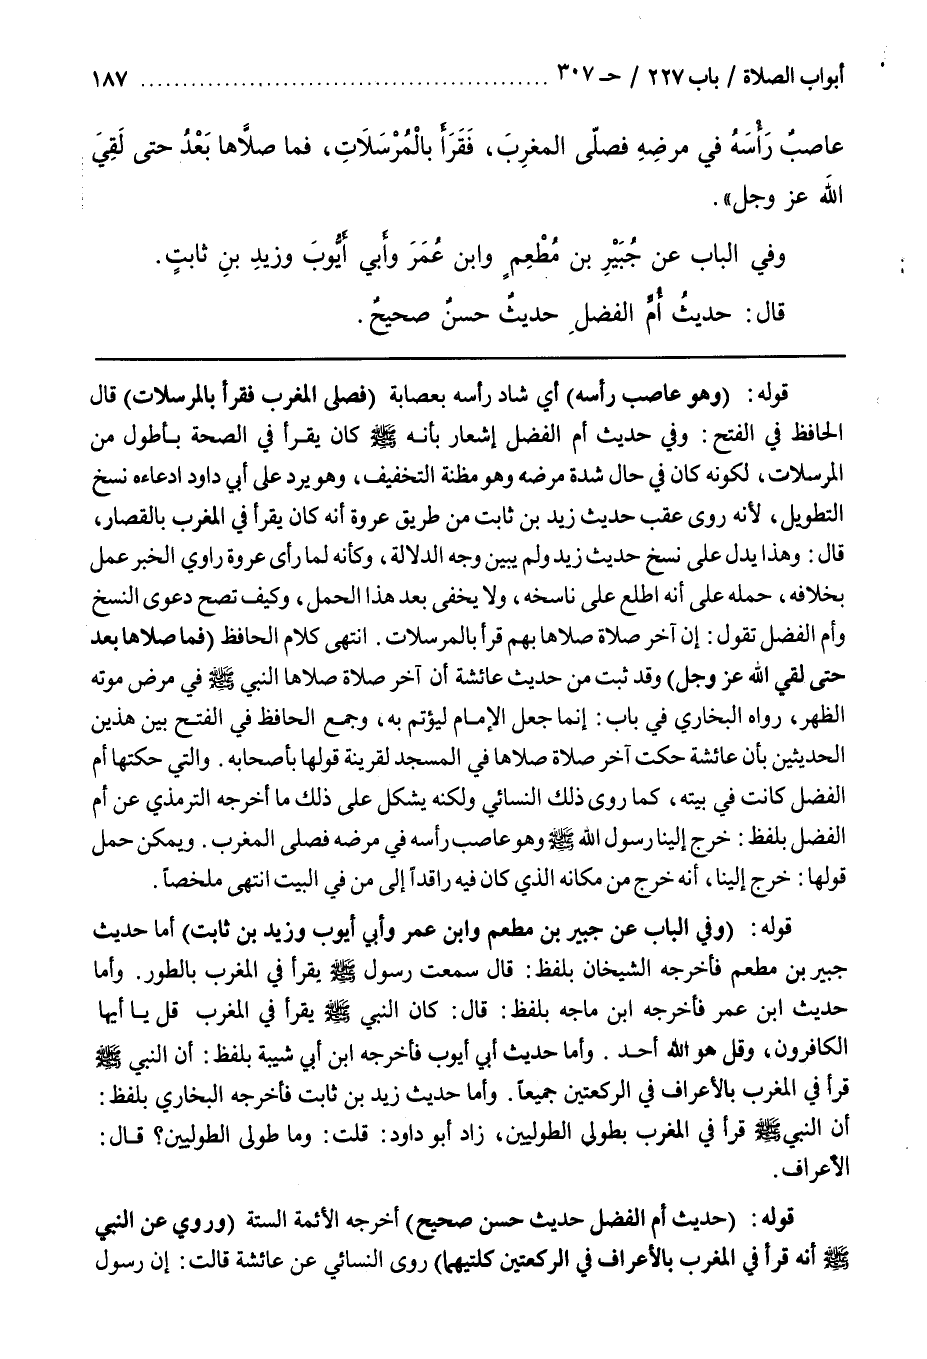 أبواب الصلاة / باب ٢٢٧ / حـ ٣٠٧ ................................................ ١٨٧
عاصبٌ رَأْسَهُ في مرضِهِ فصلّى المغرِبَ، فَقَرَأَ بالْمُرْسَلَاتِ، فما صلاَّها بَعْدُ حتى لَقِيَ
اللهَ عز وجل».
وفي الباب عن جُبَيْرِ بن مُطْعِمٍ وابن عُمَرَ وأَبي أَيُّوبَ وزيدِ بنِ ثابتٍ.
قال: حديثُ أُمِّ الفضلِ حديثٌ حسنٌ صحيحٌ.
قوله: (وهو عاصب رأسه) أي شاد رأسه بعصابة (فصلى المغرب فقرأ بالمرسلات) قال
الحافظ في الفتح: وفي حديث أم الفضل إشعار بأنه ﷺ كان يقرأ في الصحة بأطول من
المرسلات، لكونه كان في حال شدة مرضه وهو مظنة التخفيف، وهو يرد على أبي داود ادعاءه نسخ
التطويل، لأنه روى عقب حديث زيد بن ثابت من طريق عروة أنه كان يقرأ في المغرب بالقصار،
قال: وهذا يدل على نسخ حديث زيد ولم يبين وجه الدلالة، وكأنه لما رأى عروة راوي الخبر عمل
بخلافه، حمله على أنه اطلع على ناسخه، ولا يخفى بعد هذا الحمل، وكيف تصح دعوى النسخ
وأم الفضل تقول: إن آخر صلاة صلاها بهم قرأ بالمرسلات. انتهى كلام الحافظ (فما صلاها بعد
حتى لقي الله عز وجل) وقد ثبت من حديث عائشة أن آخر صلاة صلاها النبي ﷺ في مرض موته
الظهر، رواه البخاري في باب: إنما جعل الإمام ليؤتم به، وجمع الحافظ في الفتح بين هذين
الحديثين بأن عائشة حكت آخر صلاة صلاها في المسجد لقرينة قولها بأصحابه. والتي حكتها أم
الفضل كانت في بيته، كما روى ذلك النسائي ولكنه يشكل على ذلك ما أخرجه الترمذي عن أم
الفضل بلفظ: خرج إلينا رسول الله ﷺ وهو عاصب رأسه في مرضه فصلى المغرب. ويمكن حمل
قولها: خرج إلينا، أنه خرج من مكانه الذي كان فيه راقداً إلى من في البيت انتهى ملخصاً.
قوله: (وفي الباب عن جبير بن مطعم وابن عمر وأبي أيوب وزيد بن ثابت) أما حديث
جبير بن مطعم فأخرجه الشيخان بلفظ: قال سمعت رسول ﷺ يقرأ في المغرب بالطور. وأما
حديث ابن عمر فأخرجه ابن ماجه بلفظ: قال: كان النبي ﷺ يقرأ في المغرب قل يا أيها
الكافرون، وقل هو الله أحد. وأما حديث أبي أيوب فأخرجه ابن أبي شيبة بلفظ: أن النبي ﷺ
قرأ في المغرب بالأعراف في الركعتين جميعاً. وأما حديث زيد بن ثابت فأخرجه البخاري بلفظ:
أن النبي ﷺ قرأ في المغرب بطولى الطوليين، زاد أبو داود: قلت: وما طولى الطوليين؟ قال:
الأعراف.
قوله: (حديث أم الفضل حديث حسن صحيح) أخرجه الأئمة الستة (وروي عن النبي
ﷺ أنه قرأ في المغرب بالأعراف في الركعتين كلتيهما) روى النسائي عن عائشة قالت: إن رسول